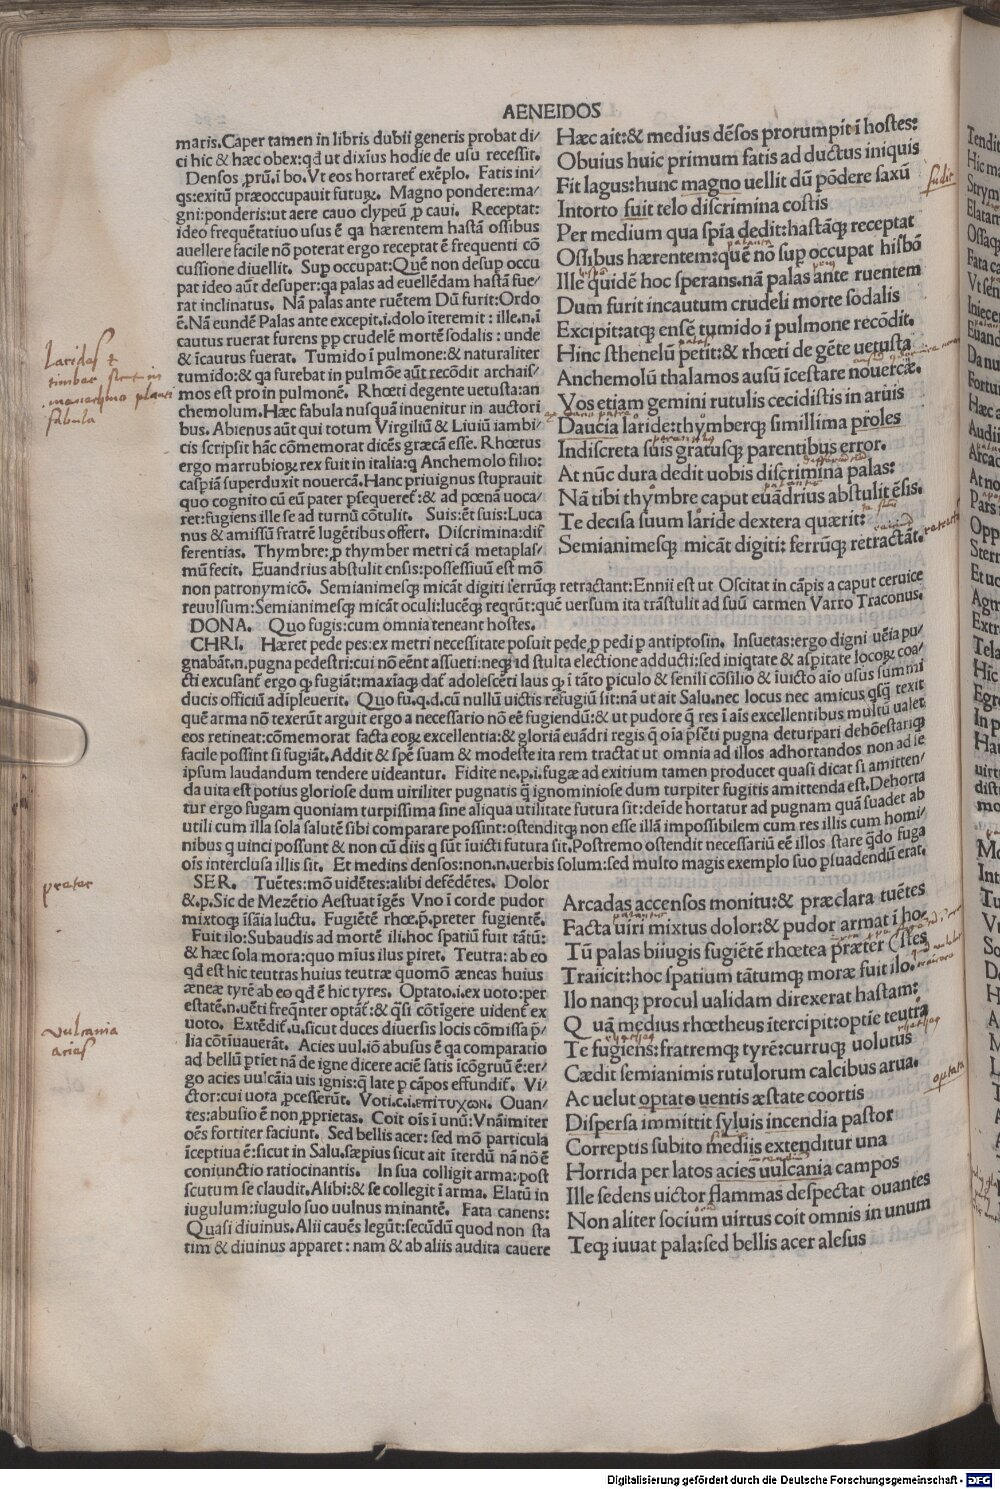 AENEIDOS
maris. Caper tamen in libris dubii generis probat di/
ci hic & hæc obex: qđ ut diximus hodie de usu recessit.
Densos ꝓrũ. i bo. Vt eos hortaret exẽplo. Fatis ini/
qs: exitũ præoccupauit futuꝝ. Magno pondere: ma/
gni: ponderis: ut aere cauo clypeũ ꝓ caui. Receptat:
ideo frequẽtatiuo usus ẽ qa hærentem hastã ossibus
auellere facile nõ poterat ergo receptat ẽ frequenti cõ
cussione diuellit. Suꝑ occupat: Quẽ non desup occu
pat ideo aũt desuper: qa palas ad euellẽdam hastã fue/
rat inclinatus. Nã palas ante ruẽtem Dũ furit: Ordo
ẽ. Nã eundẽ Palas ante excepit. i. dolo ĩteremit: ille. n. ĩ
cautus ruerat furens ꝓꝑ crudelẽ mortẽ sodalis: unde
& ĩcautus fuerat. Tumido ĩ pulmone: & naturaliter
tumido: & qa furebat in pulmõe aũt recõdit archais/
mos est pro in pulmonẽ. Rhœti degente uetusta: an
chemolum. Hæc fabula nusquã inuenitur in auctori
bus. Abienus aũt qui totum Virgiliũ & Liuiũ iambi/
cis scripsit hãc cõmemorat dicẽs græcã esse. Rhœtus
ergo marrubioꝝ rex fuit in italia: q Anchemolo filio:
caspiã superduxit nouercã. Hanc priuignus stuprauit
quo cognito cũ eũ pater ꝑsequeret: & ad pœnã uoca/
ret: fugiens ille se ad turnũ cõtulit. Suis: ẽt suis: Luca
nus & amissũ fratrẽ lugẽtibus offert. Discrimina: dif
ferentias. Thymbre: ꝓ thymber metri cã metaplas/
mũ fecit. Euandrius abstulit ensis: possessiuũ est mõ
non patronymicõ. Semianimesqꝫ micãt digiti ferrũqꝫ retractant: Ennii est ut Oscitat in cãpis a caput ceruice
reuulsum: Semianimesqꝫ micãt oculi: lucẽqꝫ reqrũt: quẽ uersum ita trãstulit ad suũ carmen Varro Traconus.
DONA. Quo fugis: cum omnia teneant hostes.
CHRI. Hæret pede pes: ex metri necessitate posuit pede ꝓ pedi ꝑ antiptosin. Insuetas: ergo digni uẽia pu/
gnabãt. n. pugna pedestri: cui nõ eẽnt assueti: neqꝫ id stulta electione adducti: sed iniqtate & aspitate locoꝝ coa/
cti excusant ergo qꝫ fugiãt: maxĩaqꝫ dat adolescẽti laus qꝫ ĩ tãto ꝑiculo & senili cõsilio & ĩuicto aĩo usus summi
ducis officiũ adĩpleuerit. Quo fu. q. d. cũ nullũ uictis refugiũ sit: nã ut ait Salu. nec locus nec amicus qsqꝫ texit
quẽ arma nõ texerũt arguit ergo a necessatio nõ eẽ fugiendũ: & ut pudore q̃ res ĩ aĩs excellentibus multũ ualet
eos retineat: cõmemorat facta eoꝝ excellentia: & gloriã euãdri regis q̃ oĩa ꝑsẽti pugna deturpari dehõestariqꝫ
facile possint si fugiãt. Addit & spẽ suam & modeste ita rem tractat ut omnia ad illos adhortandos non ad se
ipsum laudandum tendere uideantur. Fidite ne. p. i. fugæ ad exitium tamen producet quasi dicat si amitten/
da uita est potius gloriose dum uiriliter pugnatis q̃ ignominiose dum turpiter fugitis amittenda est. Dehorta
tur ergo fugam quoniam turpissima sine aliqua utilitate futura sit: deĩde hortatur ad pugnam quã suadet ab
utili cum illa sola salutẽ sibi comparare possint: ostenditqꝫ non esse illã impossibilem cum res illis cum homi/
nibus q uinci possunt & non cũ diis q sũt ĩuicti futura sit. Postremo ostendit necessariũ eẽ illos stare q̃do fuga
oĩs interclusa illis sit. Et medins densos: non. n. uerbis solum: sed multo magis exemplo suo ꝑsuadendũ erat.
SER. Tuẽtes: mõ uidẽtes: alibi defẽdẽtes. Dolor
&. p. Sic de Mezẽtio Aestuat ĩgẽs Vno ĩ corde pudor
mixtoqꝫ ĩsãia luctu. Fugiẽtẽ rhœ. p̃. preter fugientẽ.
Fuit ilo: Subaudis ad mortẽ ili. hoc spatiũ fuit tãtũ:
& hæc sola mora: quo mius ilus piret. Teutra: ab eo
qđ est hic teutras huius teutræ quomõ æneas huius
æneæ tyrẽ ab eo qđ ẽ hic tyres. Optato. i. ex uoto: per
estatẽ. n. uẽti freq̃nter optãt: & q̃si cõtĩgere uidẽt ex
uoto. Extẽdit. u. sicut duces diuersis locis cõmissa p̃/
lia cõtĩuauerãt. Acies uul. iõ abusus ẽ qa comparatio
ad bellũ ꝑtiet nã de igne dicere aciẽ satis ĩcõgruũ ẽ: er/
go acies uulcãia uis ignis: q late ꝑ cãpos effundit. Vi/
ctor: cui uota ꝓcesserũt. Voti. c. i. ἐπιτυχων. Ouan/
tes: abusio ẽ non ꝓprietas. Coit oĩs ĩ unũ: Vnãimiter
oẽs fortiter faciunt. Sed bellis acer: sed mõ particula
ĩceptiua ẽ: sicut in Salu. sæpius sicut ait ĩterdũ nã nõ ẽ
coniunctio ratiocinantis. In sua colligit arma: post
scutum se claudit. Alibi: & se collegit ĩ arma. Elatũ in
iugulum: iugulo suo uulnus minantẽ. Fata canens:
Quasi diuinus. Alii cauẽs legũt: secũdũ quod non sta
tim & diuinus apparet: nam & ab aliis audita cauere
Hæc ait: & medius dẽsos prorumpit ĩ hostes:
Obuius huic primum fatis adductus iniquis
Fit lagus: hunc magno uellit dũ põdere saxũ
Intorto fuit telo discrimina costis
Per medium qua spia dedit: hastãqꝫ receptat
Ossibus hærentem: quẽ nõ suꝑ occupat hisbõ
Ille quidẽ hoc sperans. nã palas ante ruentem
Dum furit incautum crudeli morte sodalis
Excipit: atqꝫ ensẽ tumido ĩ pulmone recõdit.
Hinc sthenelũ petit: & rhœti de gẽte uetusta
Anchemolũ thalamos ausũ ĩcestare nouercæ.
Vos etiam gemini rutulis cecidistis in aruis
Daucia laride: thymberqꝫ simillima proles
Indiscreta suis gratusqꝫ parentibus error.
At nũc dura dedit uobis discrimina palas:
Nã tibi thymbre caput euãdrius abstulit ẽsis.
Te decisa suum laride dextera quærit:
Semianimesqꝫ micãt digiti: ferrũqꝫ retractãt.
Arcadas accensos monitu: & præclara tuẽtes
Facta uiri mixtus dolor: & pudor armat ĩ ho
Tũ palas biiugis fugiẽtẽ rhœtea præter (stes
Traiicit: hoc spatium tãtumqꝫ moræ fuit ilo.
Ilo nanqꝫ procul ualidam direxerat hastam:
Quã medius rhœtheus ĩtercipit: optĩe teutrã
Te fugiens: fratremqꝫ tyrẽ: curruqꝫ uolutus
Cædit semianimis rutulorum calcibus arua.
Ac uelut optato uentis æstate coortis
Dispersa immittit syluis incendia pastor
Correptis subito mediis extenditur una
Horrida per latos acies uulcania campos
Ille sedens uictor flammas despectat ouantes
Non aliter socium uirtus coit omnis in unum
Teqꝫ iuuat pala: sed bellis acer alesus
fudit
Larides &
timber
fabula
preter
vulcania
acies
optata
Digitalisierung gefördert durch die Deutsche Forschungsgemeinschaft - DFG